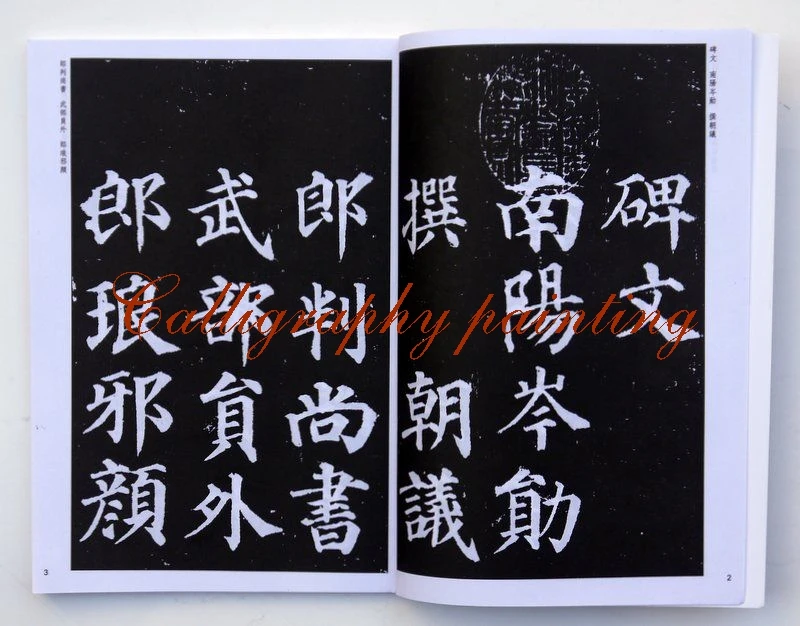 碑文 南陽岑勛 撰朝議
碑文
南陽岑勛
撰 朝議
2
郎判尚書
武部員外
郎琅邪顏
郎判尚書 武部員外 郎琅邪顏
3
Calligraphy painting